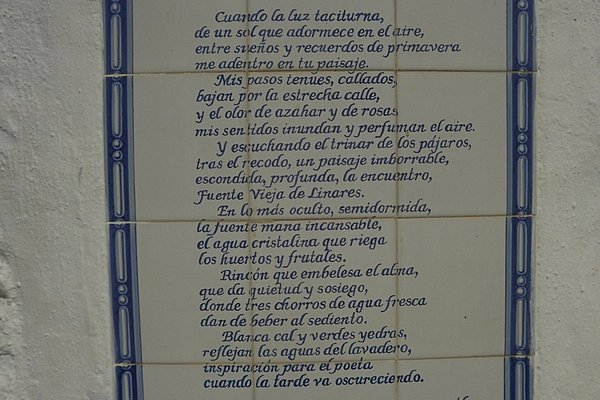 Cuando la luz taciturna,
de un sol que adormece en el aire,
entre sueños y recuerdos de primavera
me adentro en tu paisaje.
Mis pasos tenues, callados,
bajan por la estrecha calle,
y el olor de azahar y de rosas
mis sentidos inundan y perfuman el aire.
Y escuchando el trinar de los pájaros,
tras el recodo, un paisaje imborrable,
escondida, profunda, la encuentro,
Fuente Vieja de Linares.
En lo más oculto, semidormida,
la fuente mana incansable,
el agua cristalina que riega
los huertos y frutales.
Rincón que embelesa el alma,
que da quietud y sosiego,
donde tres chorros de agua fresca
dan de beber al sediento.
Blanca cal y verdes yedras,
reflejan las aguas del lavadero,
inspiración para el poeta
cuando la tarde va oscureciendo.